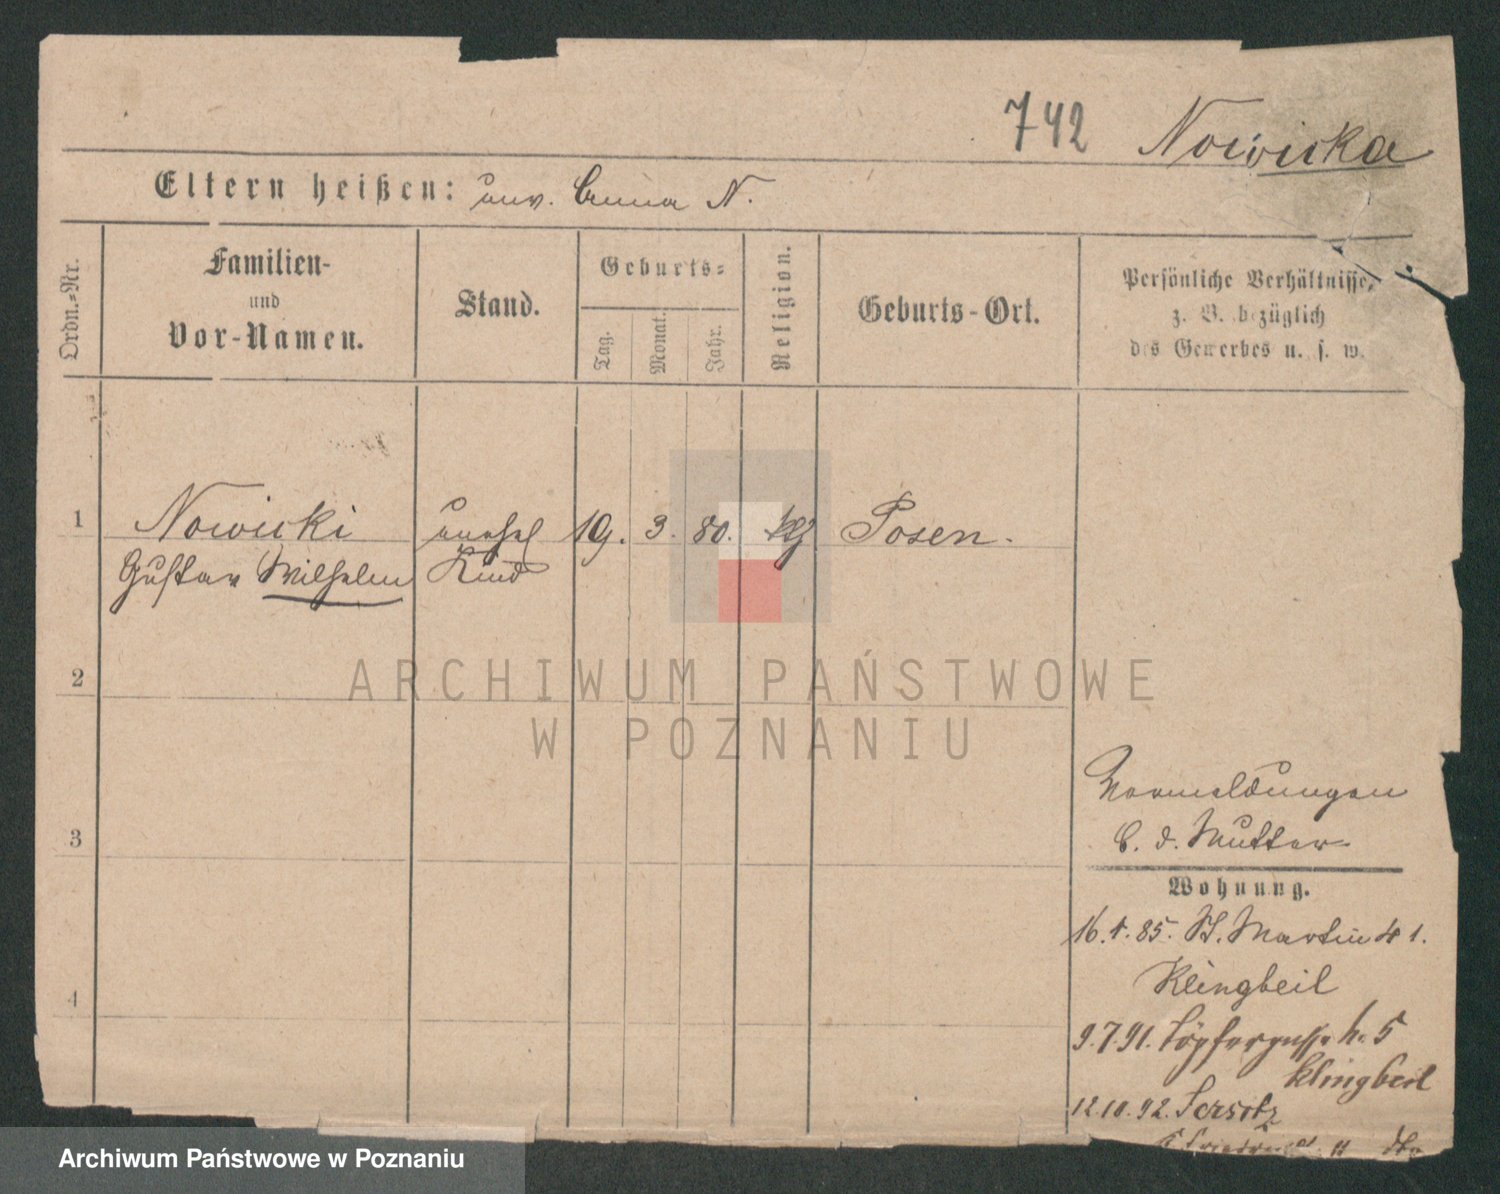 742 Nowicka
Eltern heißen: unv. Anna N.
Ordn.=Nr.
Familien-
und
Vor-Namen.
Stand.
Geburts=
Tag.
Monat.
Jahr.
Religion.
Geburts-Ort.
Persönliche Verhältnisse,
z. B. bezüglich
des Gewerbes u. s. w.
1 Nowicki unehel 19. 3. 80. Posen.
Gustav Wilhelm Kind
2
ARCHIWUM PAŃSTWOWE
W POZNANIU
3
4
Vormeldungen
b. d. Mutter
Wohnung.
16. 1. 85. St. Martin 41.
Klingbeil
9.7.91. Töpfergasse 5
Klingbeil
12.10.92. Jersitz
Archiwum Państwowe w Poznaniu